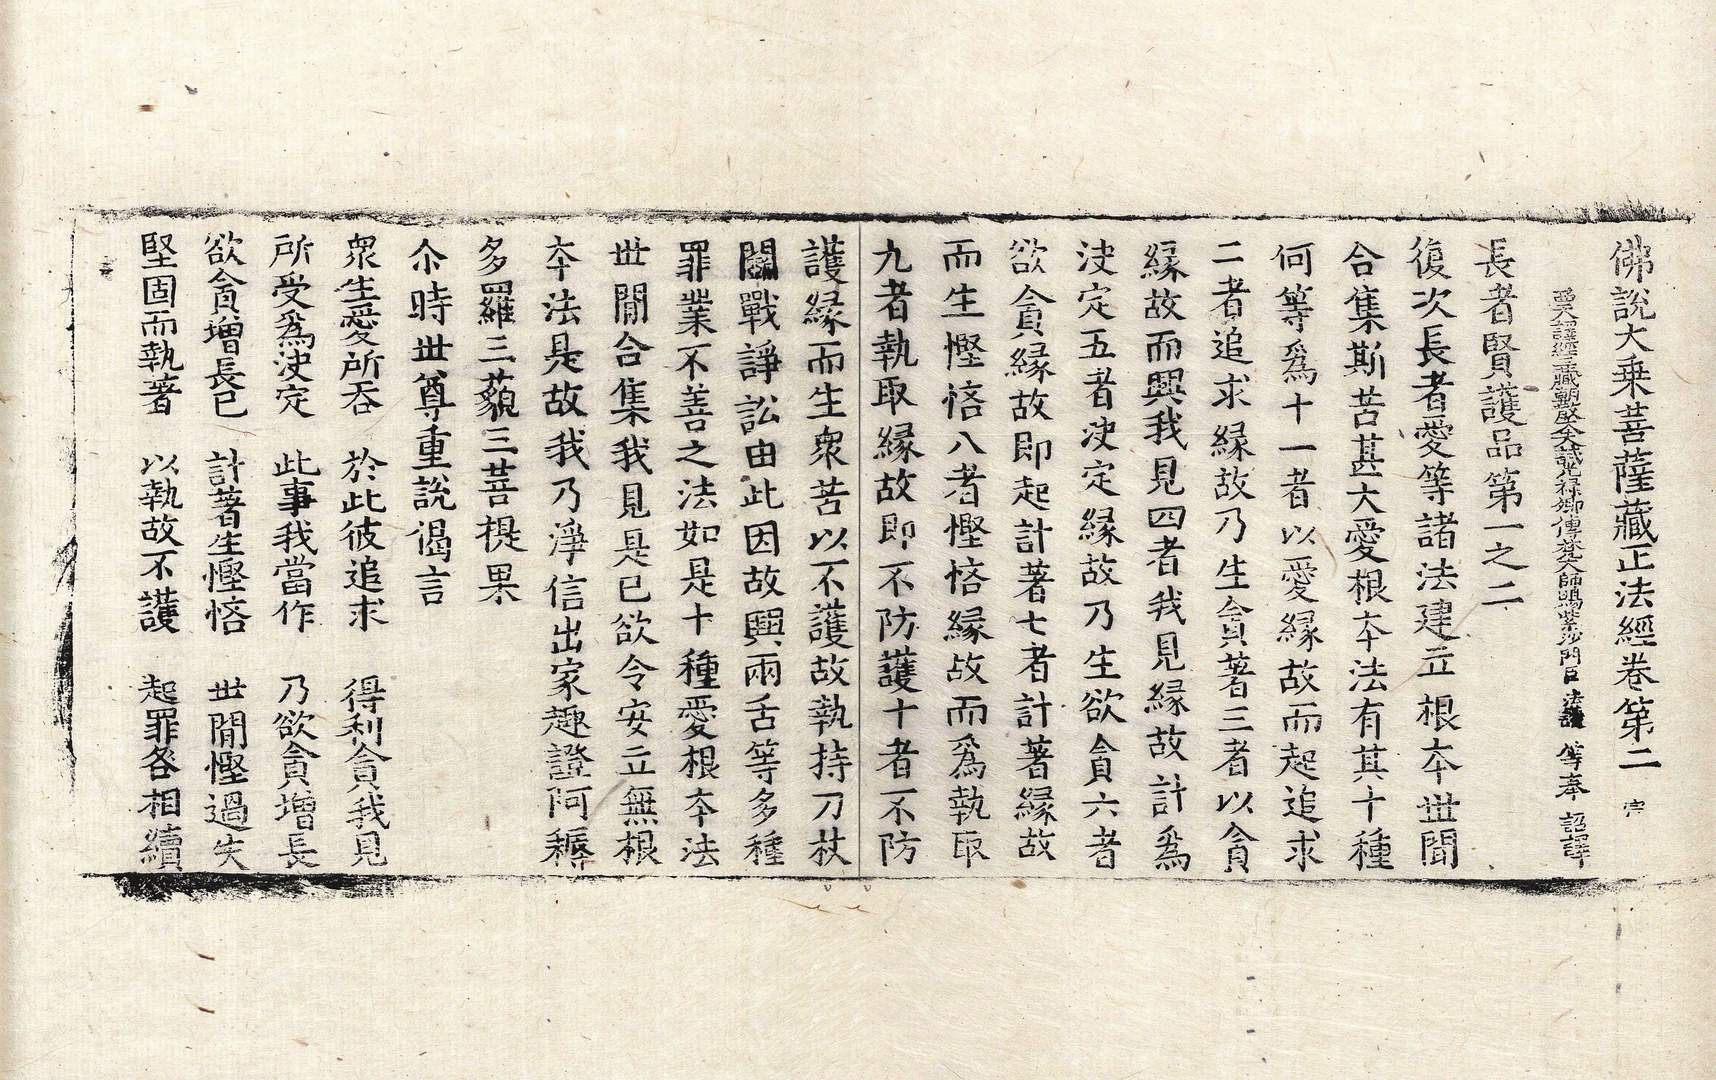 佛說大乗菩薩藏正法經卷第二 宗
譯經三藏朝散大夫試光祿卿傳梵大師賜紫沙門臣 法護 等奉 詔譯
長者賢護品第一之二
復次長者愛等諸法建立根夲丗閒
合集斯苦甚大愛根夲法有其十種
何等爲十一者以愛縁故而起追求
二者追求縁故乃生貪著三者以貪
縁故而興我見四者我見縁故計爲
決定五者決定縁故乃生欲貪六者
欲貪縁故即起計著七者計著縁故
而生慳悋八者慳悋縁故而爲執取
九者執取縁故即不防護十者不防
護縁而生衆苦以不護故執持刀杖
鬬戰諍訟由此因故興兩舌等多種
罪業不善之法如是十種愛根夲法
丗閒合集我見是已欲令安立無根
夲法是故我乃淨信出家趣證阿耨
多羅三藐三菩提果
尒時丗尊重說偈言
衆生愛所吞 於此彼追求 得利貪我見
所受爲決定 此事我當作 乃欲貪增長
欲貪增長已 計著生慳悋 丗閒慳過失
堅固而執著 以執故不護 起罪各相續